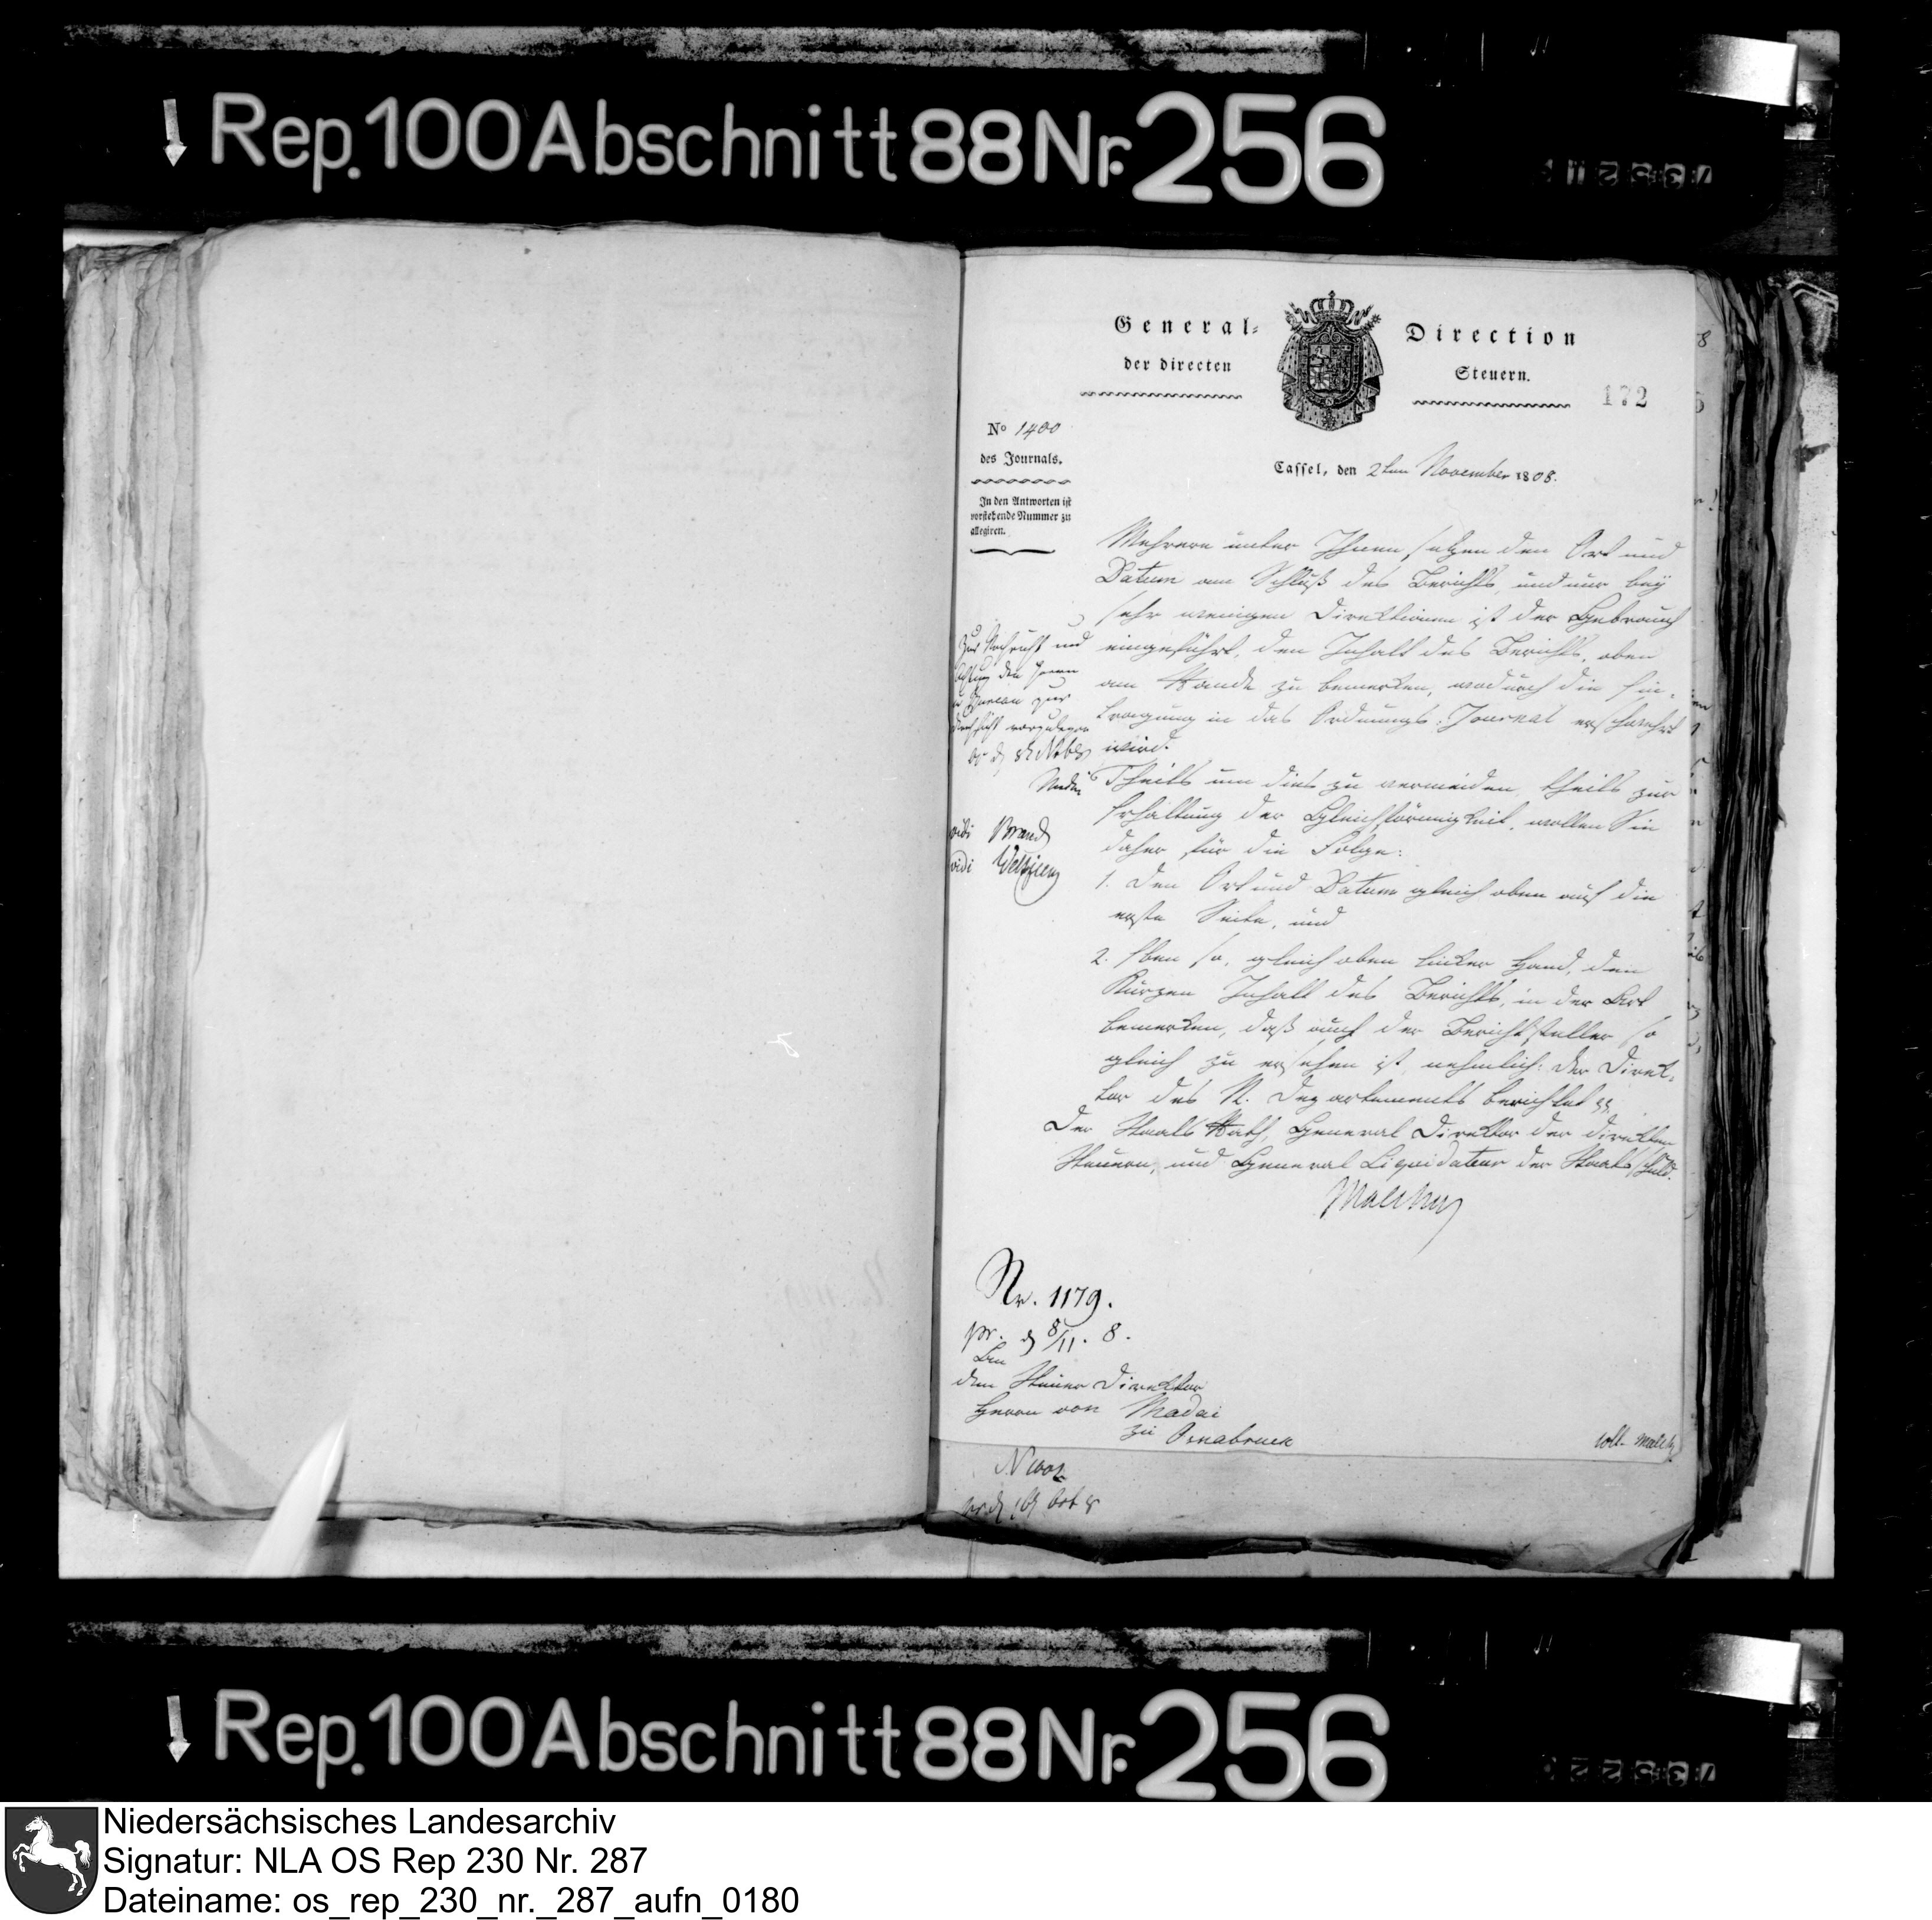 Rep. 100 Abschnitt 88 Nr. 256
General- Direction
der directen Steuern.
172
No 1400
des Journals.
In den Antworten ist
vorstehende Nummer zu
allegiren.
Cassel, den 2ten November 1808.
Mehrere unter Ihnen setzen den Ort und
Datum am Schluß des Berichts, und nur bey
sehr wenigen Direktionen ist der Gebrauch
eingeführt, den Inhalt des Berichts, oben
am Rande zu bemerken, wodurch die Ein-
tragung in das Ordnungs-Journal erschwehrt
wird.
Theils um dies zu vermeiden, theils zur
Erhaltung der Gleichförmigkeit, wollen Sie
daher für die Folge:
1. den Ort und Datum gleich oben auf die
erste Seite, und
2. Eben so, gleich oben linker Hand, den
kurzen Inhalt des Berichts, in der Art
bemerken, daß auch der Berichtsteller so
gleich zu ersehen ist, nehmlich: der Direk-
tor des N. Departements berichtet
Der Staats Rath, General Direktor der direkten
Steuern, und General Liquidateur der Staatsschuld.
Malchus
Zur Nachricht und
Achtung den Herrn
zur
Durchsicht vorzulegen
Madai
vidi Brand
vidi
Nr. 1179.
pr. d 8/11. 8.
An
den Steuer Direktor
Herrn von Madai
zu Osnabruck
coll. Malch
Rep. 100 Abschnitt 88 Nr. 256
Niedersächsisches Landesarchiv
Signatur: NLA OS Rep 230 Nr. 287
Dateiname: os_rep_230_nr._287_aufn_0180